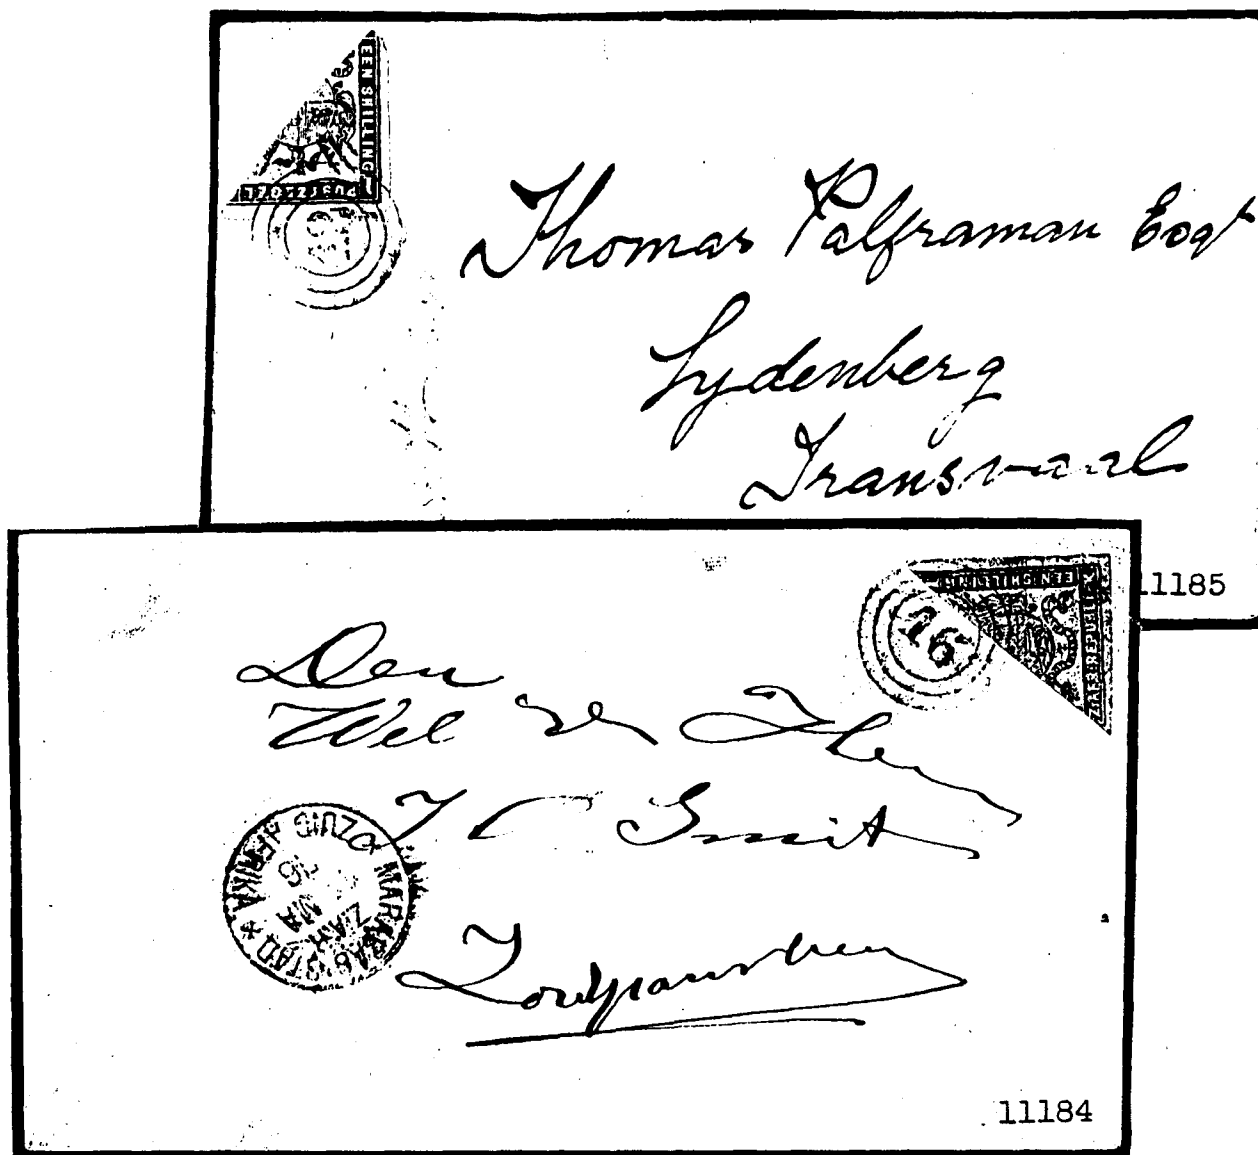 EEN SHILLING
POSTZEGEL
Thomas Palframan Esqr
Lydenberg
Transvaal
11185
EEN SHILLING
76
Den
Wel
J C Smit
Zoutpansberg
MARABASTAD
ZUID AFRIKA
ZAR
11184